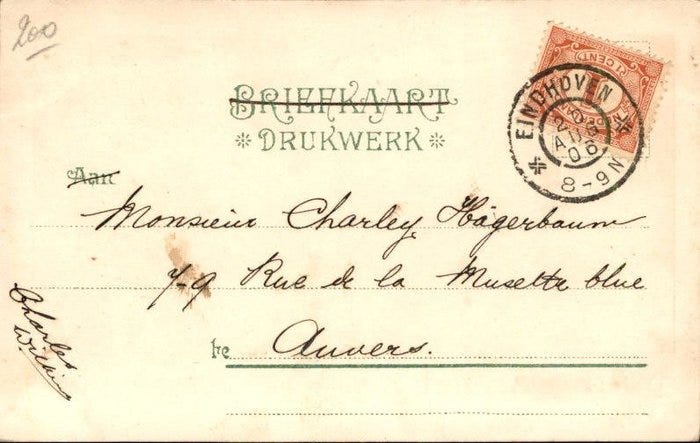 200
BRIEFKAART
DRUKWERK
Aan
Monsieur Charley Hägerbaum
7-9 Rue de la Musette blue
te Anvers.
Charles
EINDHOVEN
AUG
06
8-9N
1 CENT